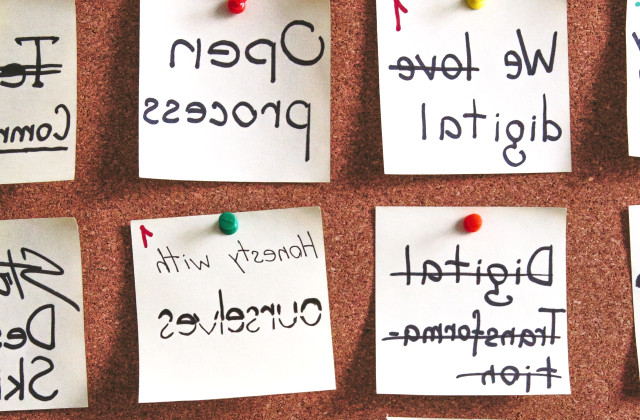 Comm
Open
process
1
We love
digital
Des
Ski
1
Honesty with
ourselves
Digital
Transforma-
tion